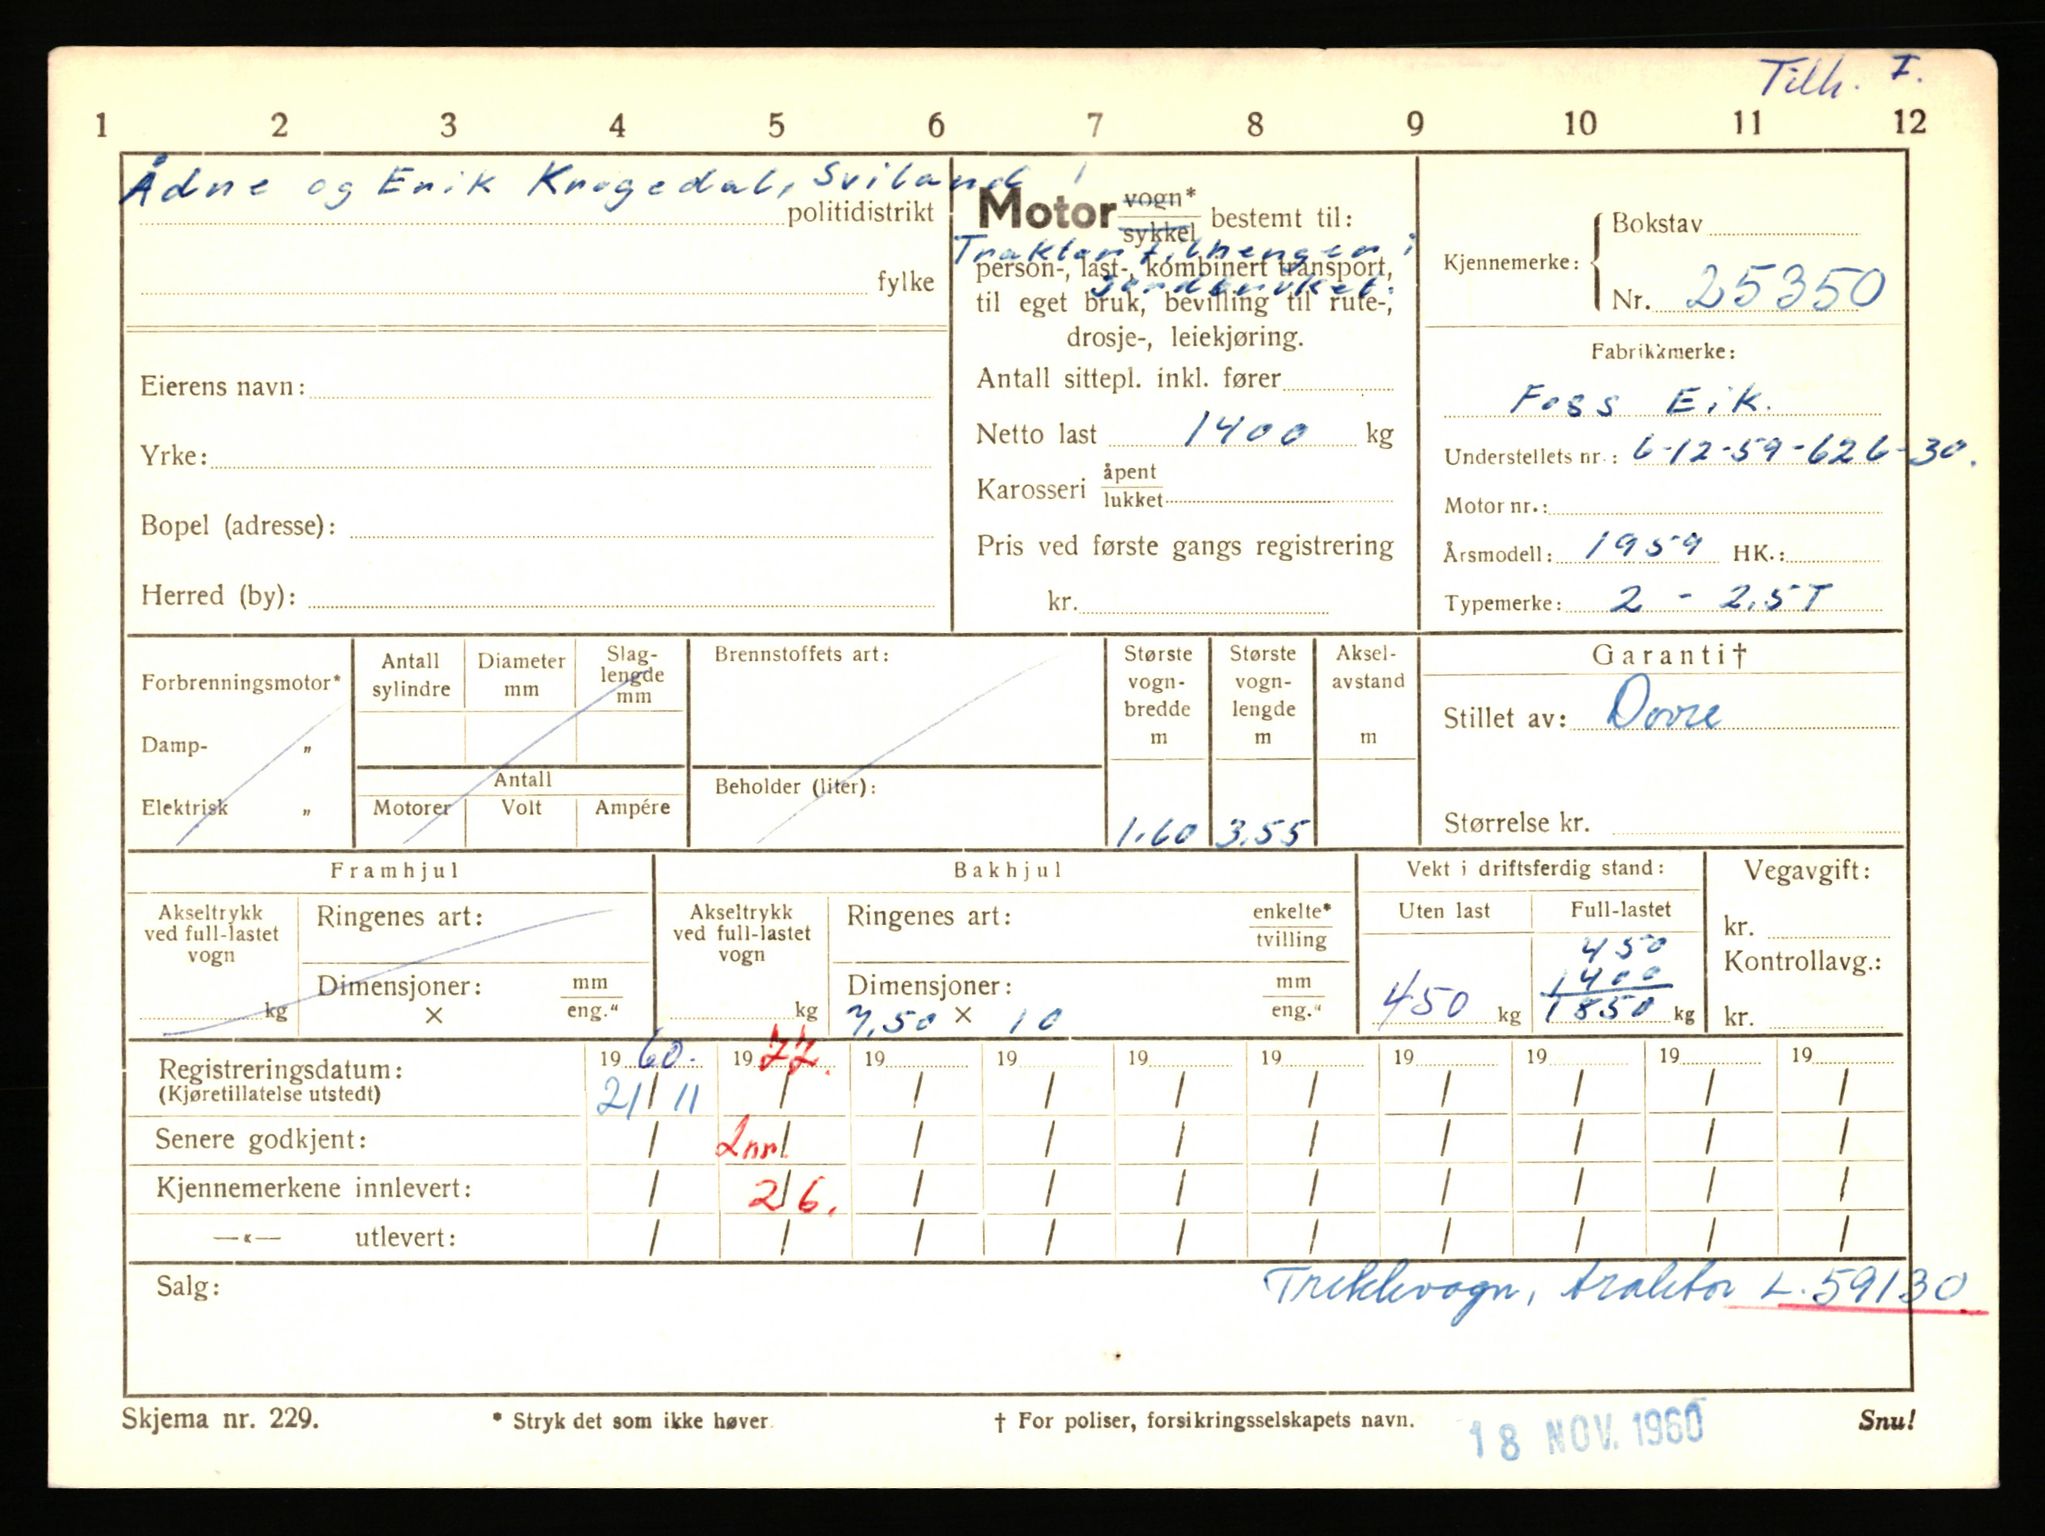 Tilh. I.
1 2 3 4 5 6 7 8 9 10 11 12
Ådne og Erik Krogedal, Sviland
politidistrikt
fylke
Eierens navn:
Yrke:
Bopel (adresse):
Herred (by):
Motor vogn* sykkel bestemt til:
Traktortilhenger i
person-, last-, kombinert transport,
gardbruket.
til eget bruk, bevilling til rute-,
drosje-, leiekjøring.
Antall sittepl. inkl. fører
Netto last 1400 kg
Karosseri åpent lukket
Pris ved første gangs registrering
kr.
Kjennemerke: Bokstav
Nr. 25350
Fabrikkmerke:
Foss Eik.
Understellets nr.: 6-12-59-626-30.
Motor nr.:
Årsmodell: 1959 HK.:
Typemerke: 2 - 2.5T
Forbrenningsmotor*
Damp- „
Elektrisk „
Antall sylindre
Diameter mm
Slag-
lengde
mm
Antall
Motorer Volt Ampére
Brennstoffets art:
Beholder (liter):
Største
vogn-
bredde
m
1.60
Største
vogn-
lengde
m
3.55
Aksel-
avstand
m
Garanti†
Stillet av: Dovre
Størrelse kr.
Framhjul
Akseltrykk
ved full-lastet
vogn
kg
Ringenes art:
Dimensjoner: mm eng."
×
Bakhjul
Akseltrykk
ved full-lastet
vogn
kg
Ringenes art: enkelte* tvilling
Dimensjoner: mm eng."
7,50 × 10
Vekt i driftsferdig stand:
Uten last
450 kg
Full-lastet
450
1400
1850 kg
Vegavgift:
kr.
Kontrollavg.:
kr.
Registreringsdatum: 19 60. 19 77. 19 19 19 19 19 19 19 19
(Kjøretillatelse utstedt) 21/11 / / / / / / / / /
Senere godkjent: / 2nr. / / / / / / / / /
Kjennemerkene innlevert: / 2/6. / / / / / / / /
—«— utlevert: / / / / / / / / / /
Salg:
Trekkvogn, traktor L.59130
Skjema nr. 229.
* Stryk det som ikke høver.
† For poliser, forsikringsselskapets navn.
18 NOV. 1960
Snu!